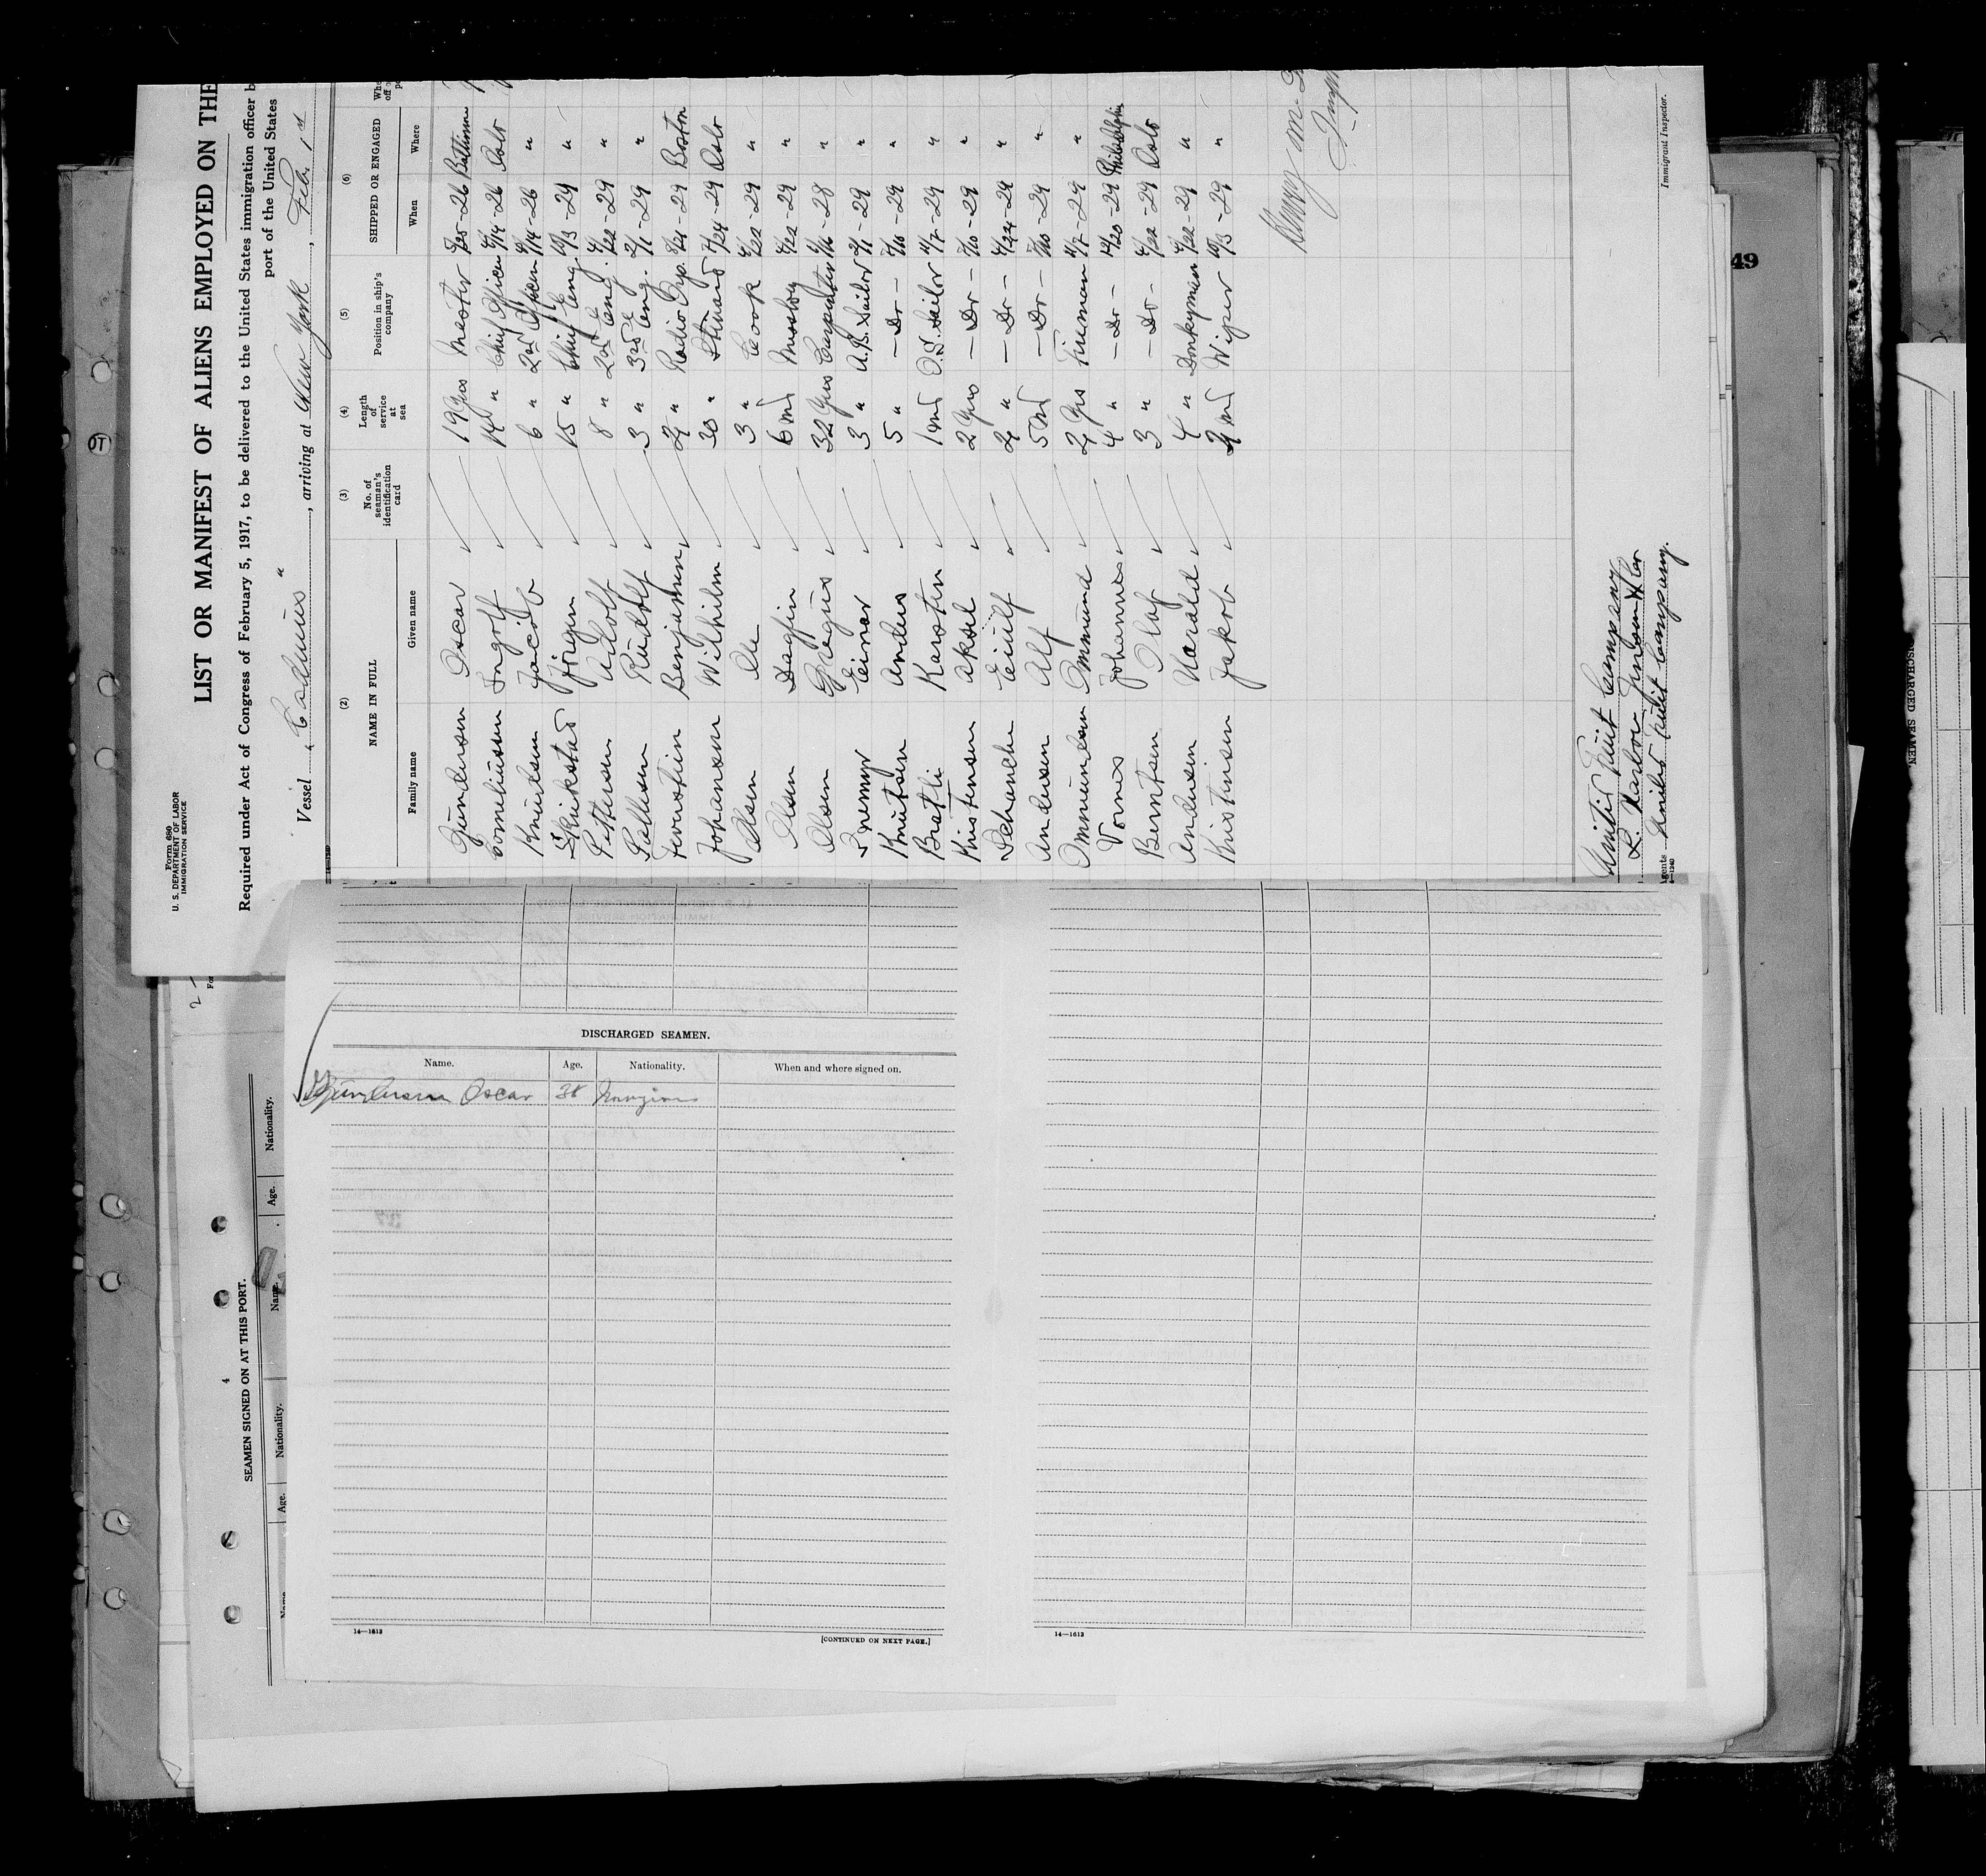 Form 680
U. S. DEPARTMENT OF LABOR
IMMIGRATION SERVICE
LIST OR MANIFEST OF ALIENS EMPLOYED ON THE
Required under Act of Congress of February 5, 1917, to be delivered to the United States immigration officer b
port of the United States
Vessel "Cadmus", arriving at New York, Feb. 1st
(2) (3) (4) (5) (6)
NAME IN FULL No. of seaman's identification card Length of service at sea Position in ship's company SHIPPED OR ENGAGED
Family name Given name When Where
Gundersen Oscar 19 yrs Master -26 Baltimore
Corneliussen Ingolf 14 " Chief Officer 4/14-26 Oslo
Knudsen Jacob 6 " 2nd Officer 4/14-26 "
Jörgen 15 " Chief Eng. 10/3-29 "
Pettersen Adolf 8 " 2nd Eng. 4/22-29 "
Rudolf 3 " 3rd Eng. 2/1-29 "
Benjamin 2 " Radio Op. -29 Boston
Johansen Wilhelm 30 " Steward 7/24-29 Oslo
Olsen Ole 3 " Cook 4/22-29 "
Olsen Dagfin 6 md Messboy 4/22-29 "
Olsen 32 yrs Carpenter -28 "
Einar 3 " A.B. Sailor 2/1-29 "
Knutsen Anders 5 " -Do- -29 "
Bratli Karsten 1 md O.S. Sailor 11/7-29 "
Kristensen Aksel 2 yrs -Do- -29 "
Schanche Eiulf 2 " -Do- -29 "
Andersen Alf 5 md -Do- -29 "
Ommundsen Ommund 2 yrs Fireman 11/7-29 "
Vornes Johannes 4 " -Do- 12/20-29 Philadelphia
Berntsen Olaf 3 " -Do- 4/22-29 Oslo
Andersen Harald 4 " Donkeyman 4/22-29 "
Kristinsen Jakob 2 md Wiper 10/3-29 "
Immigrant Inspector.
United Fruit Company
United Fruit Company.
Agents
49
DISCHARGED SEAMEN.
Name. Age. Nationality. When and where signed on.
Gundersen Oscar 38
14—1613
[CONTINUED ON NEXT PAGE.]
14—1613
4
SEAMEN SIGNED ON AT THIS PORT.
Name. Age. Nationality. Name. Age. Nationality.
DISCHARGED SEAMEN